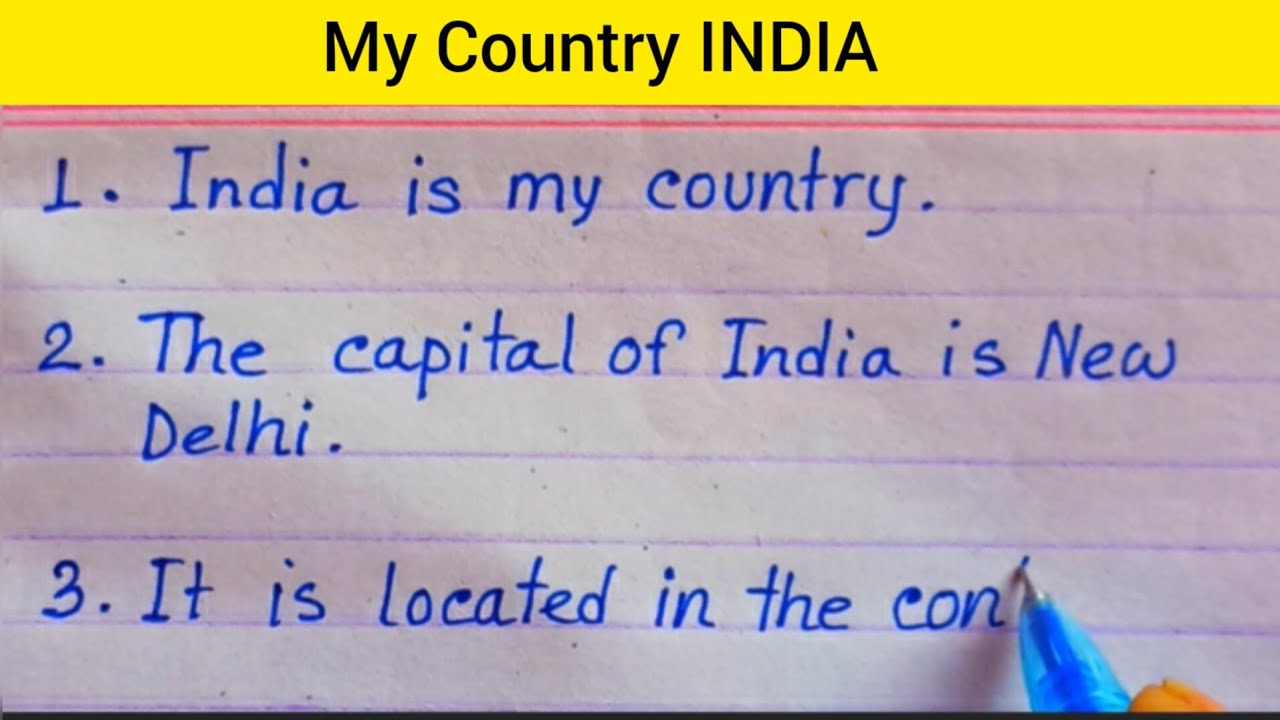 My Country INDIA
1. India is my country.
2. The capital of India is New
Delhi.
3. It is located in the con